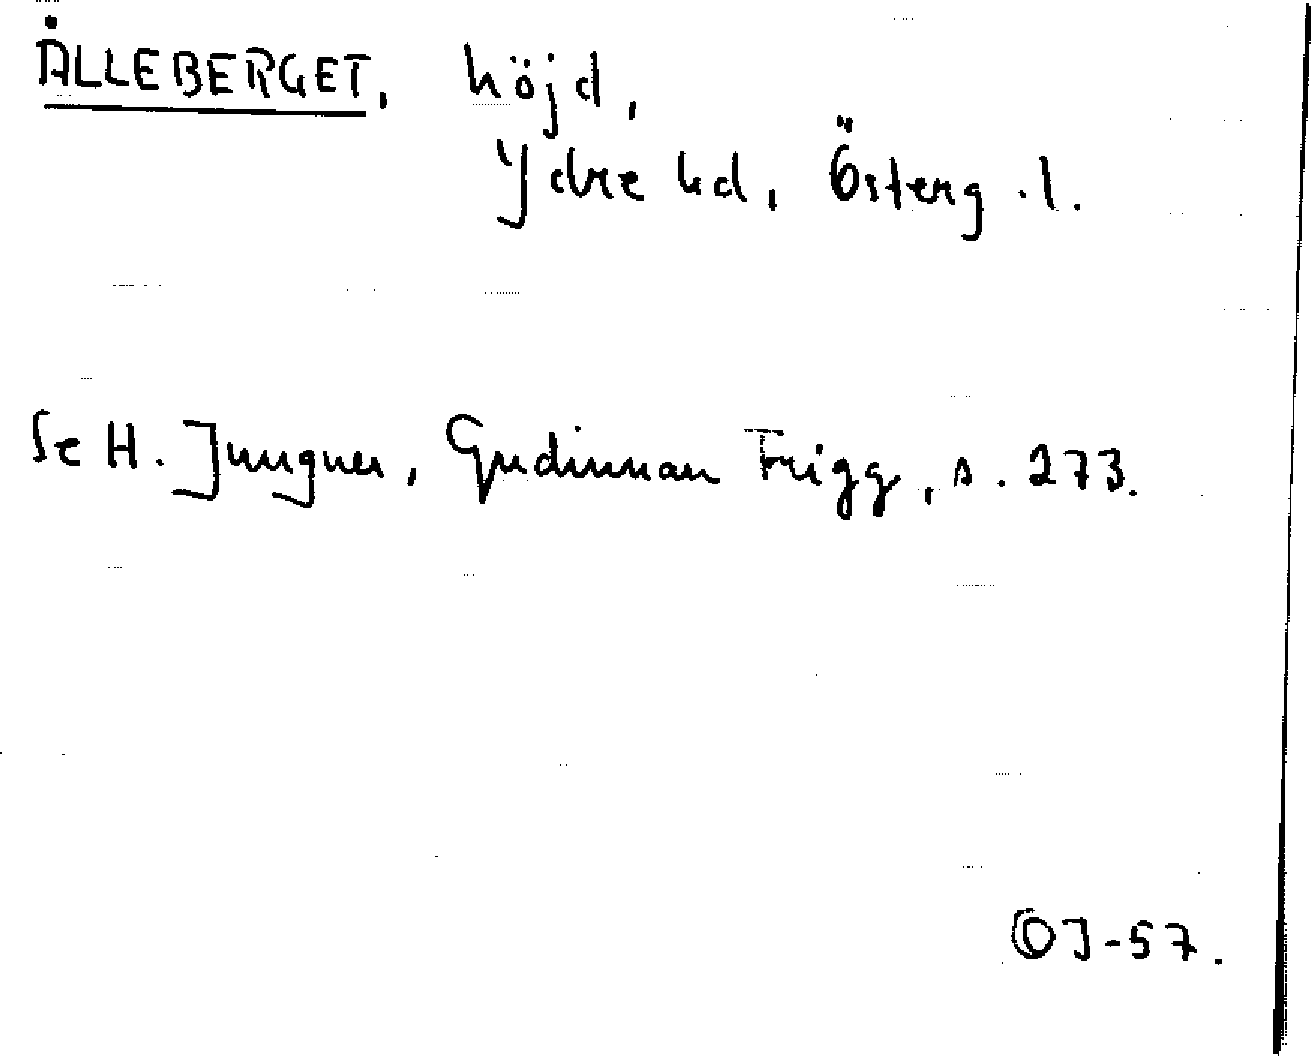 ÅLLEBERGET, höjd,
Ydre hd, Österg.l.
Se H. Jungner, Gudinnan Frigg, s. 273.
OJ-57.